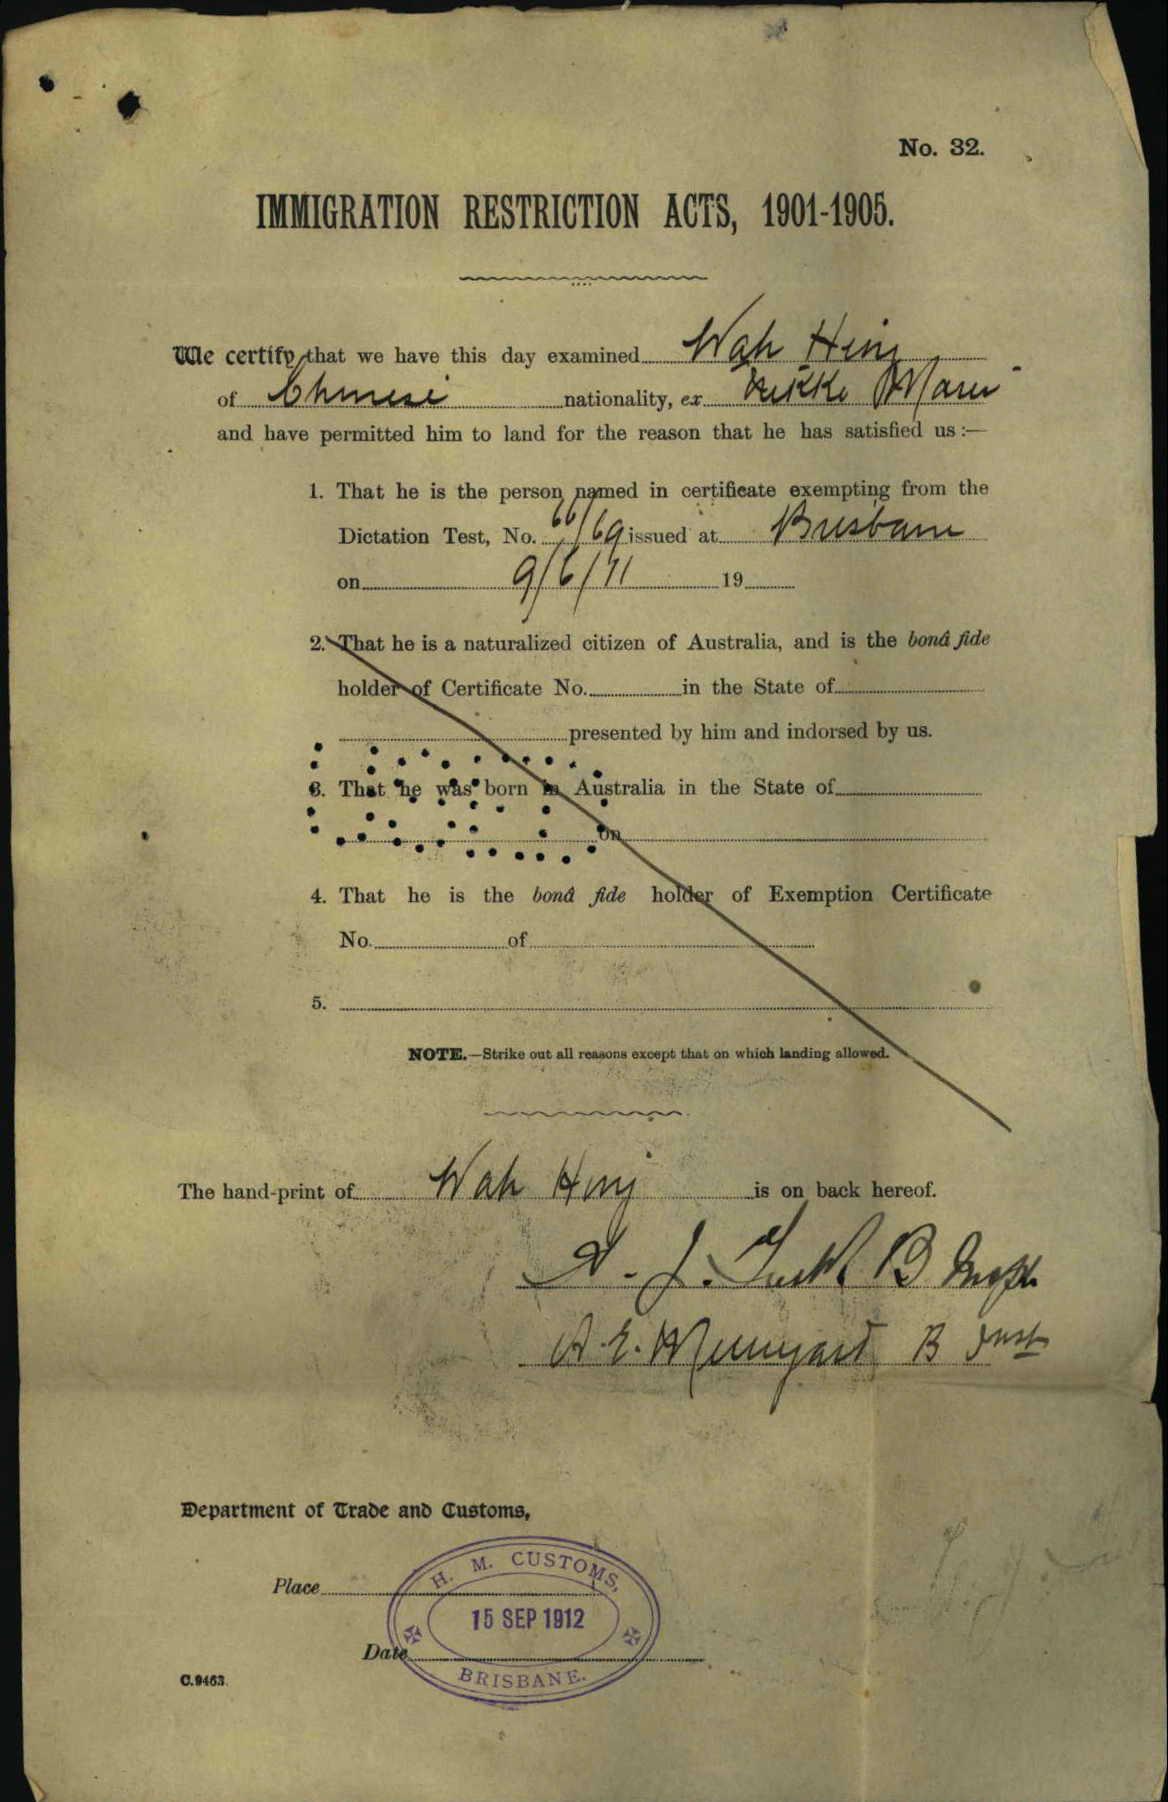 No. 32.
IMMIGRATION RESTRICTION ACTS, 1901-1905.
We certify that we have this day examined Wah Hing
of Chinese nationality, ex Nikko Maru
and have permitted him to land for the reason that he has satisfied us :—
1. That he is the person named in certificate exempting from the
Dictation Test, No. 66/69 issued at Brisbane
on 9/6/11 19
2. That he is a naturalized citizen of Australia, and is the bonâ fide
holder of Certificate No. in the State of
presented by him and indorsed by us.
3. That he was born in Australia in the State of
on
4. That he is the bonâ fide holder of Exemption Certificate
No. of
5.
NOTE.—Strike out all reasons except that on which landing allowed.
The hand-print of Wah Hing is on back hereof.
J. B
A. E. B Inst
Department of Trade and Customs,
Place
H. M. CUSTOMS,
15 SEP 1912
Date
BRISBANE.
C.9463.